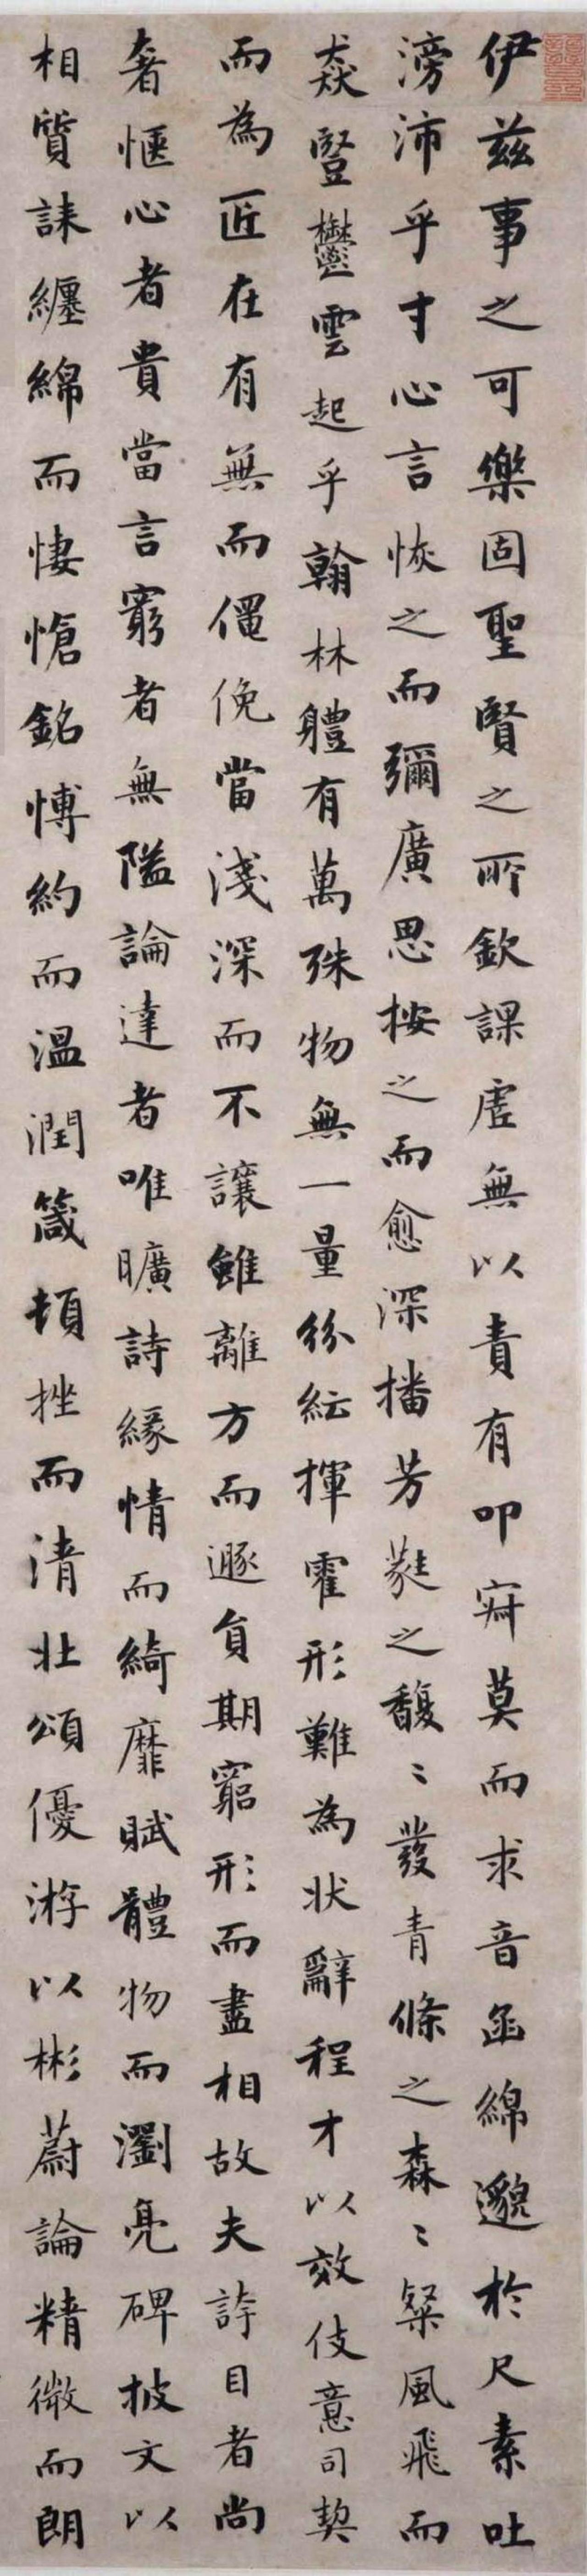 伊茲事之可樂固聖賢之所欽課虛無以責有叩寂莫而求音函綿邈於尺素吐
滂沛乎寸心言恢之而彌廣思按之而愈深播芳蕤之馥〻發青條之森〻粲風飛而
猋豎鬱雲起乎翰林體有萬殊物無一量紛紜揮霍形難為狀辭程才以效伎意司契
而為匠在有無而僶俛當淺深而不讓雖離方而遯員期窮形而盡相故夫誇目者尚
奢愜心者貴當言窮者無隘論達者唯曠詩緣情而綺靡賦體物而瀏亮碑披文以
相質誄纏綿而悽愴銘博約而溫潤箴頓挫而清壯頌優游以彬蔚論精微而朗